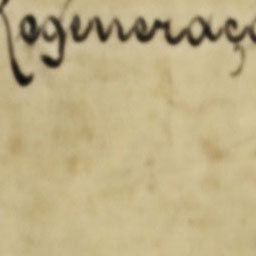 Regeneraçã